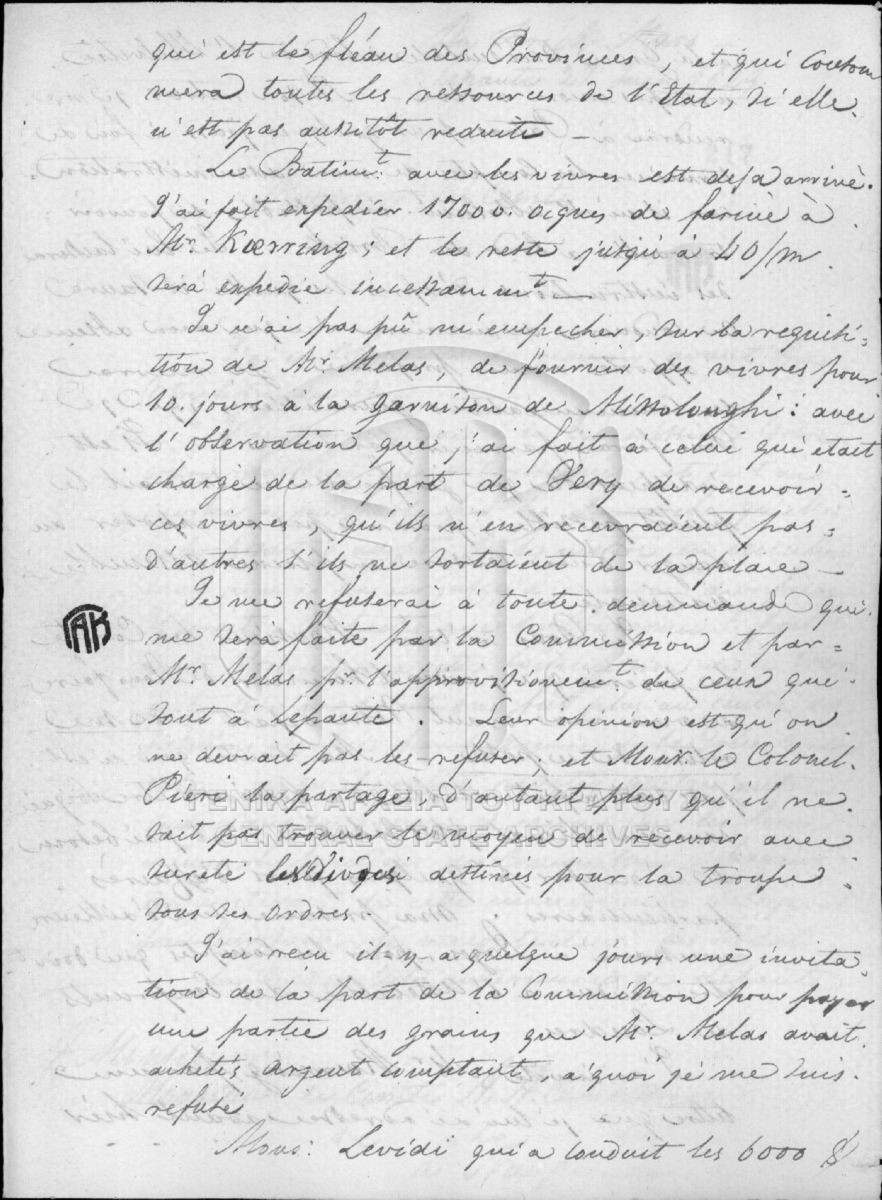 qui est le fléau des Provinces, et qui consom
mera toutes les ressources de l'Etat, si elle
n'est pas aussitôt reduite —
Le Batimt. avec les vivres est deja arrivè.
J'ai fait expedier 17000. oques de farine à
Mr. Kœrring; et le reste jusqu'à 40/m
serà expedie incessammt. —
Je n'ai pas pû m'empecher, sur la requisi-
tion de Mr. Melas, de fournir des vivres pour
10. jours à la garnison de Missolonghi: avec
l'observation que j'ai fait à celui qui etait
chargé de la part de Very de recevoir =
ces vivres, qu'ils n'en recevraient pas =
d'autres s'ils ne sortaient de la place —
Je me refuserai à toute demmande qui
me serà faite par la Commission et par =
Mr. Melas pr. l'approvisionemt. de ceux qui
sont à Lepante. Leur opinion est qu'on
ne devrait pas les refuser; et Monsr. le Colonel
Pieri la partage, d'autant plus qu'il ne
sait pas trouver le moyen de recevoir avec
sureté destinés pour la troupe
sous ses ordres.
J'ai recu il y a quelque jours une invita-
tion de la part de la Commission pour payer
une partie des grains que Mr. Melas avait
achetés argent comptant, à quoi je me suis
refusé
Mons: Levidi qui a conduit les 6000 $
ΓΑΚ
ΓΕΝΙΚΑ ΑΡΧΕΙΑ ΤΟΥ ΚΡΑΤΟΥΣ
GENERAL STATE ARCHIVES